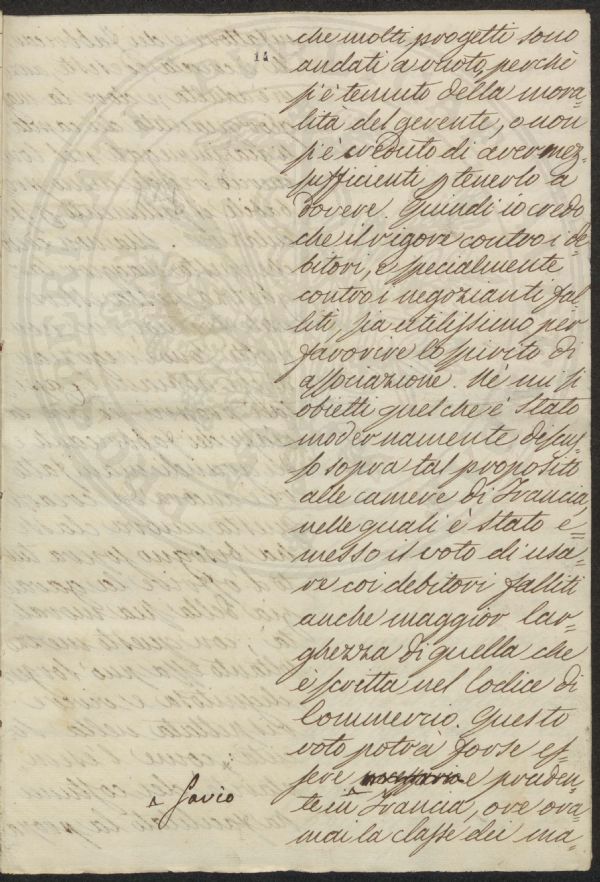 14
che molti progetti sono
andati a vuoto, perchè
s'è temuto della mora=
lità del gerente, o non
s'è creduto di aver mez=
sufficienti p tenerlo a
dovere. Quindi io credo
che il rigore contro i de
bitori, e specialmente
contro i negozianti fal
liti, sia utilissimo per
favorire lo spirito di
associazione. Nè mi si
obietti quel che è stato
modernamente discus
so sopra tal proposito
alle camere di Francia,
nelle quali è stato e=
messo il voto di usa=
re coi debitori falliti
anche maggior lar=
ghezza di quella che
è scritta nel Codice di
Commercio. Questo
voto potrà forse es
sere e pruden=
te in Francia, ove ora
mai la classe dei ma=
^ savio